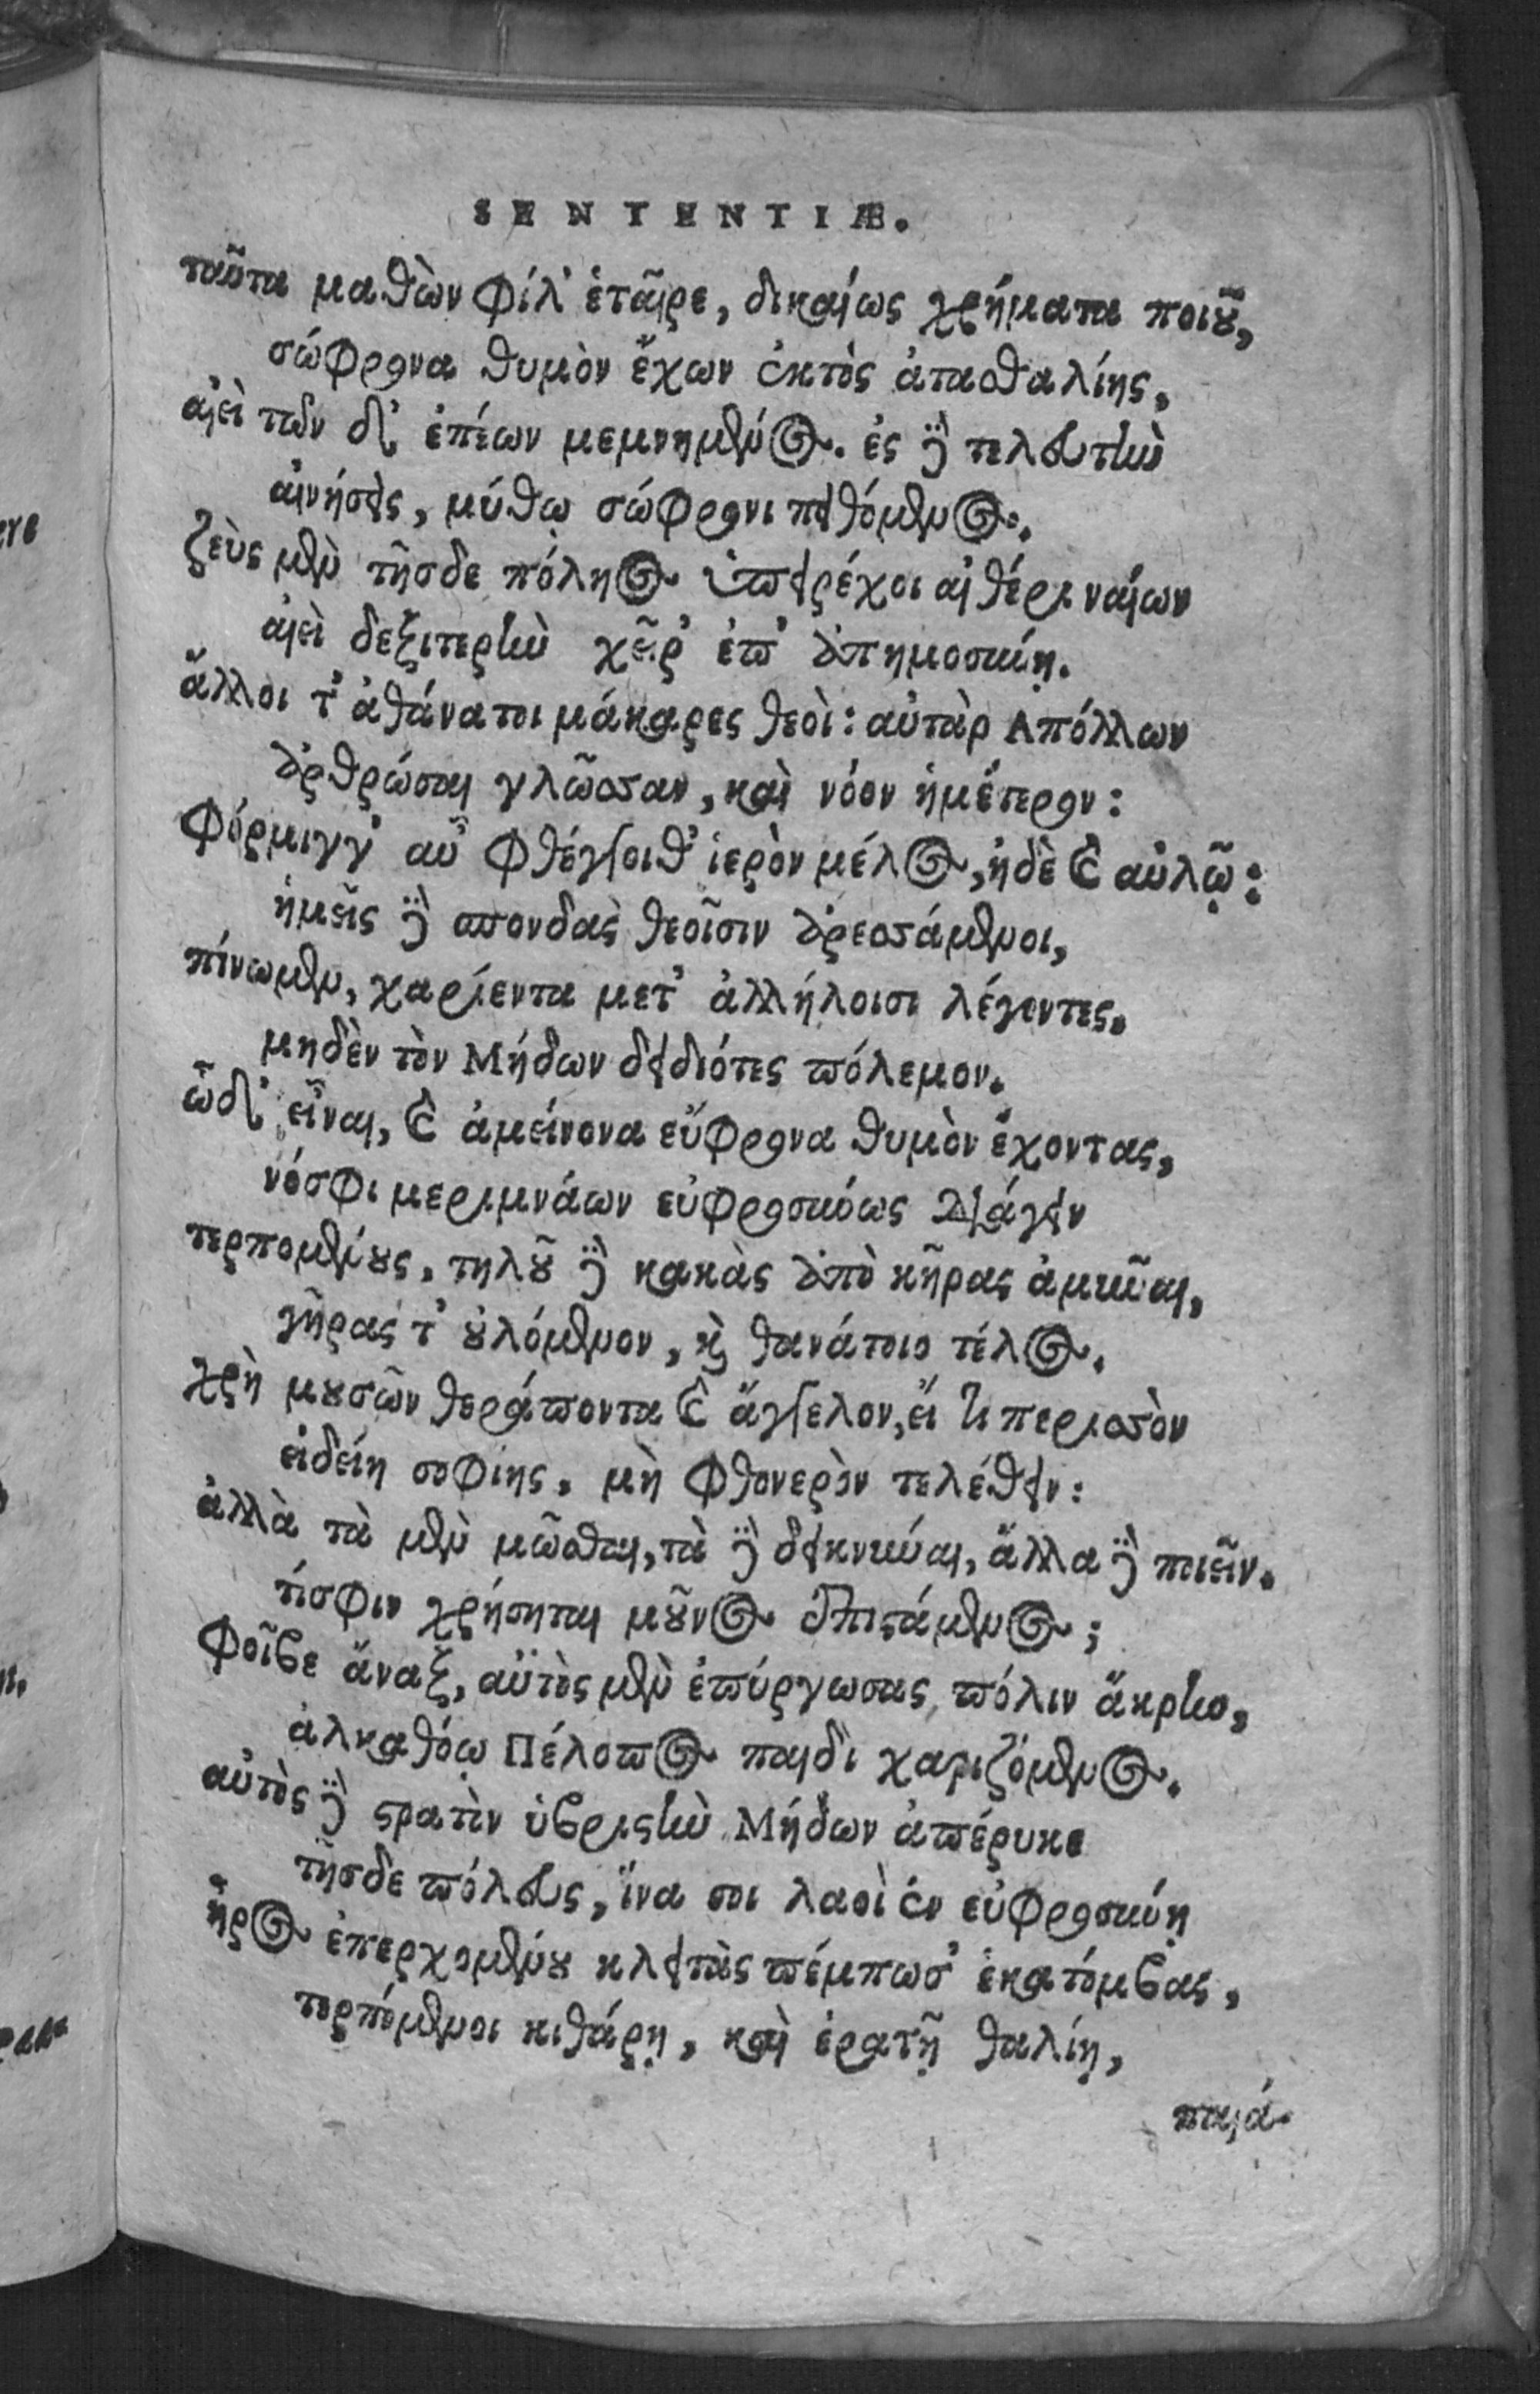 SENTENTIÆ.
ταῦτα μαθὼν φίλ' ἑταῖρε, δικαίως χρήματα ποιοῦ,
σώφρονα θυμὸν ἔχων ἐκτὸς ἀτασθαλίης,
αἰεὶ τῶν δ' ἐπέων μεμνημένος. ἐς δὲ τελευτὴν
αἰνήσεις, μύθῳ σώφρονι πειθόμενος.
ζεὺς μὲν τῆσδε πόληος ὑπειρέχοι αἰθέρι ναίων
αἰεὶ δεξιτερὴν χεῖρ' ἐπ' ἀπημοσύνῃ.
ἄλλοι τ' ἀθάνατοι μάκαρες θεοὶ: αὐτὰρ Απόλλων
ὀρθρώσαι γλῶσσαν, καὶ νόον ἡμέτερον:
φόρμιγγ' αὖ φθέγγοιθ' ἱερὸν μέλος, ἠδὲ καὶ αὐλῷ:
ἡμεῖς δὲ σπονδὰς θεοῖσιν ἀρεσσάμενοι,
πίνωμεν, χαρίεντα μετ' ἀλλήλοισι λέγοντες,
μηδὲν τὸν Μήδων δειδιότες πόλεμον.
ὧδ' εἶναι, καὶ ἀμείνονα εὔφρονα θυμὸν ἔχοντας,
νόσφι μεριμνάων εὐφροσύνως διάγειν
τερπομένους, τηλοῦ δὲ κακὰς ἀπὸ κῆρας ἀμῦναι,
γῆρας τ' οὐλόμενον, καὶ θανάτοιο τέλος.
χρὴ μουσῶν θεράποντα καὶ ἄγγελον, εἴ τι περισσὸν
εἰδείη σοφίης, μὴ φθονερὸν τελέθειν:
ἀλλὰ τὰ μὲν μῶσθαι, τὰ δὲ δεικνύναι, ἄλλα δὲ ποιεῖν.
τί σφιν χρήσηται μοῦνος ἐπιστάμενος;
φοῖβε ἄναξ, αὐτὸς μὲν ἐπύργωσας πόλιν ἄκρην,
ἀλκαθόῳ Πέλοπος παιδὶ χαριζόμενος.
αὐτὸς δὲ στρατὸν ὑβριστὴν Μήδων ἀπέρυκε
τῆσδε πόλευς, ἵνα σοι λαοὶ ἐν εὐφροσύνῃ
ἦρος ἐπερχομένου κλειτὰς πέμπωσ' ἑκατόμβας,
τερπόμενοι κιθάρῃ, καὶ ἐρατῇ θαλίῃ,
παιά-